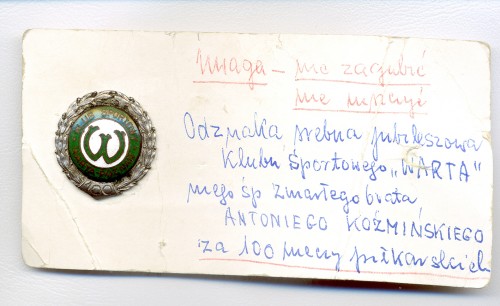 Uwaga - nie zagubić
nie
Odznaka srebrna jubileuszowa
Klubu Sportowego „WARTA"
mego śp zmarłego brata
ANTONIEGO KOŹMIŃSKIEGO
za 100 meczy piłkarskich
KLUB SPORTOWY
W